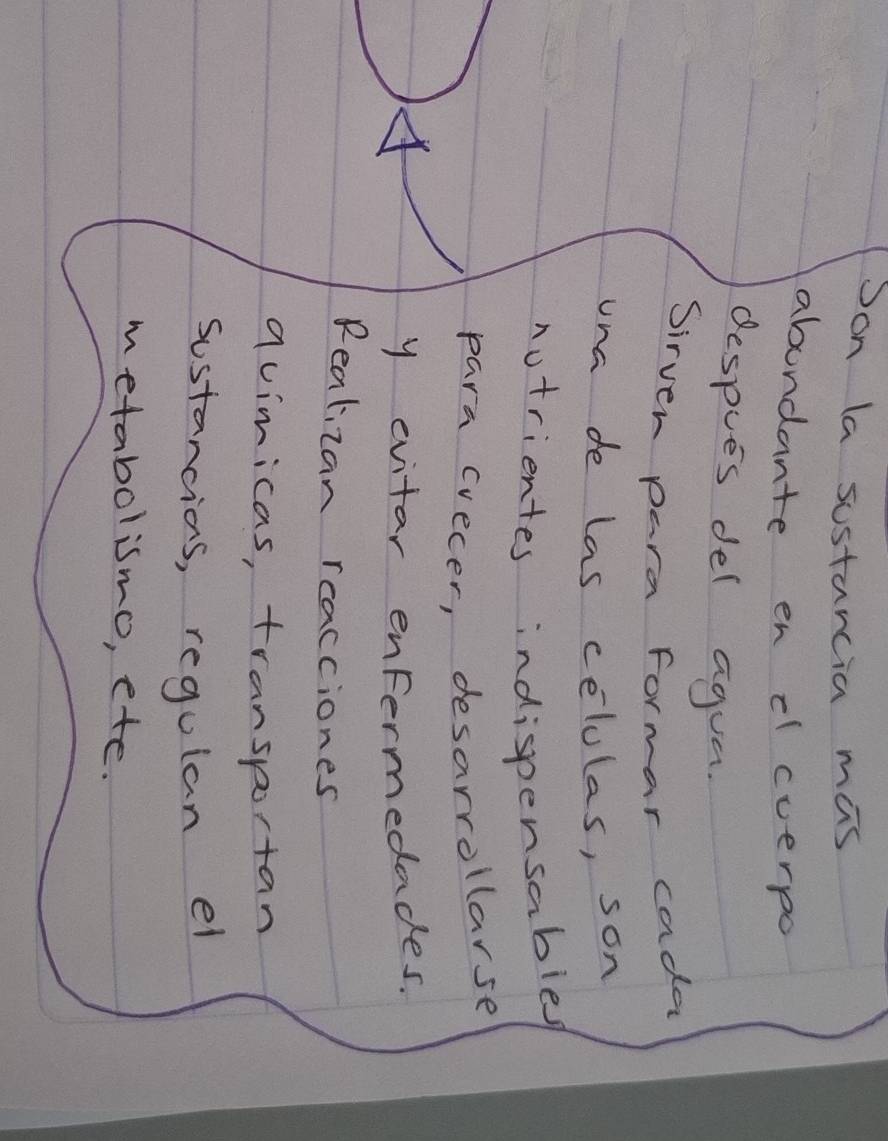 Son la sustancia más
abundante en el cuerpo
después del agua.
Sirven para formar cada
una de las células, son
nutrientes indispensables
para crecer, desarrollarse
y evitar enfermedades.
Realizan reacciones
químicas, transportan
sustancias, regulan el
metabolismo, etc.